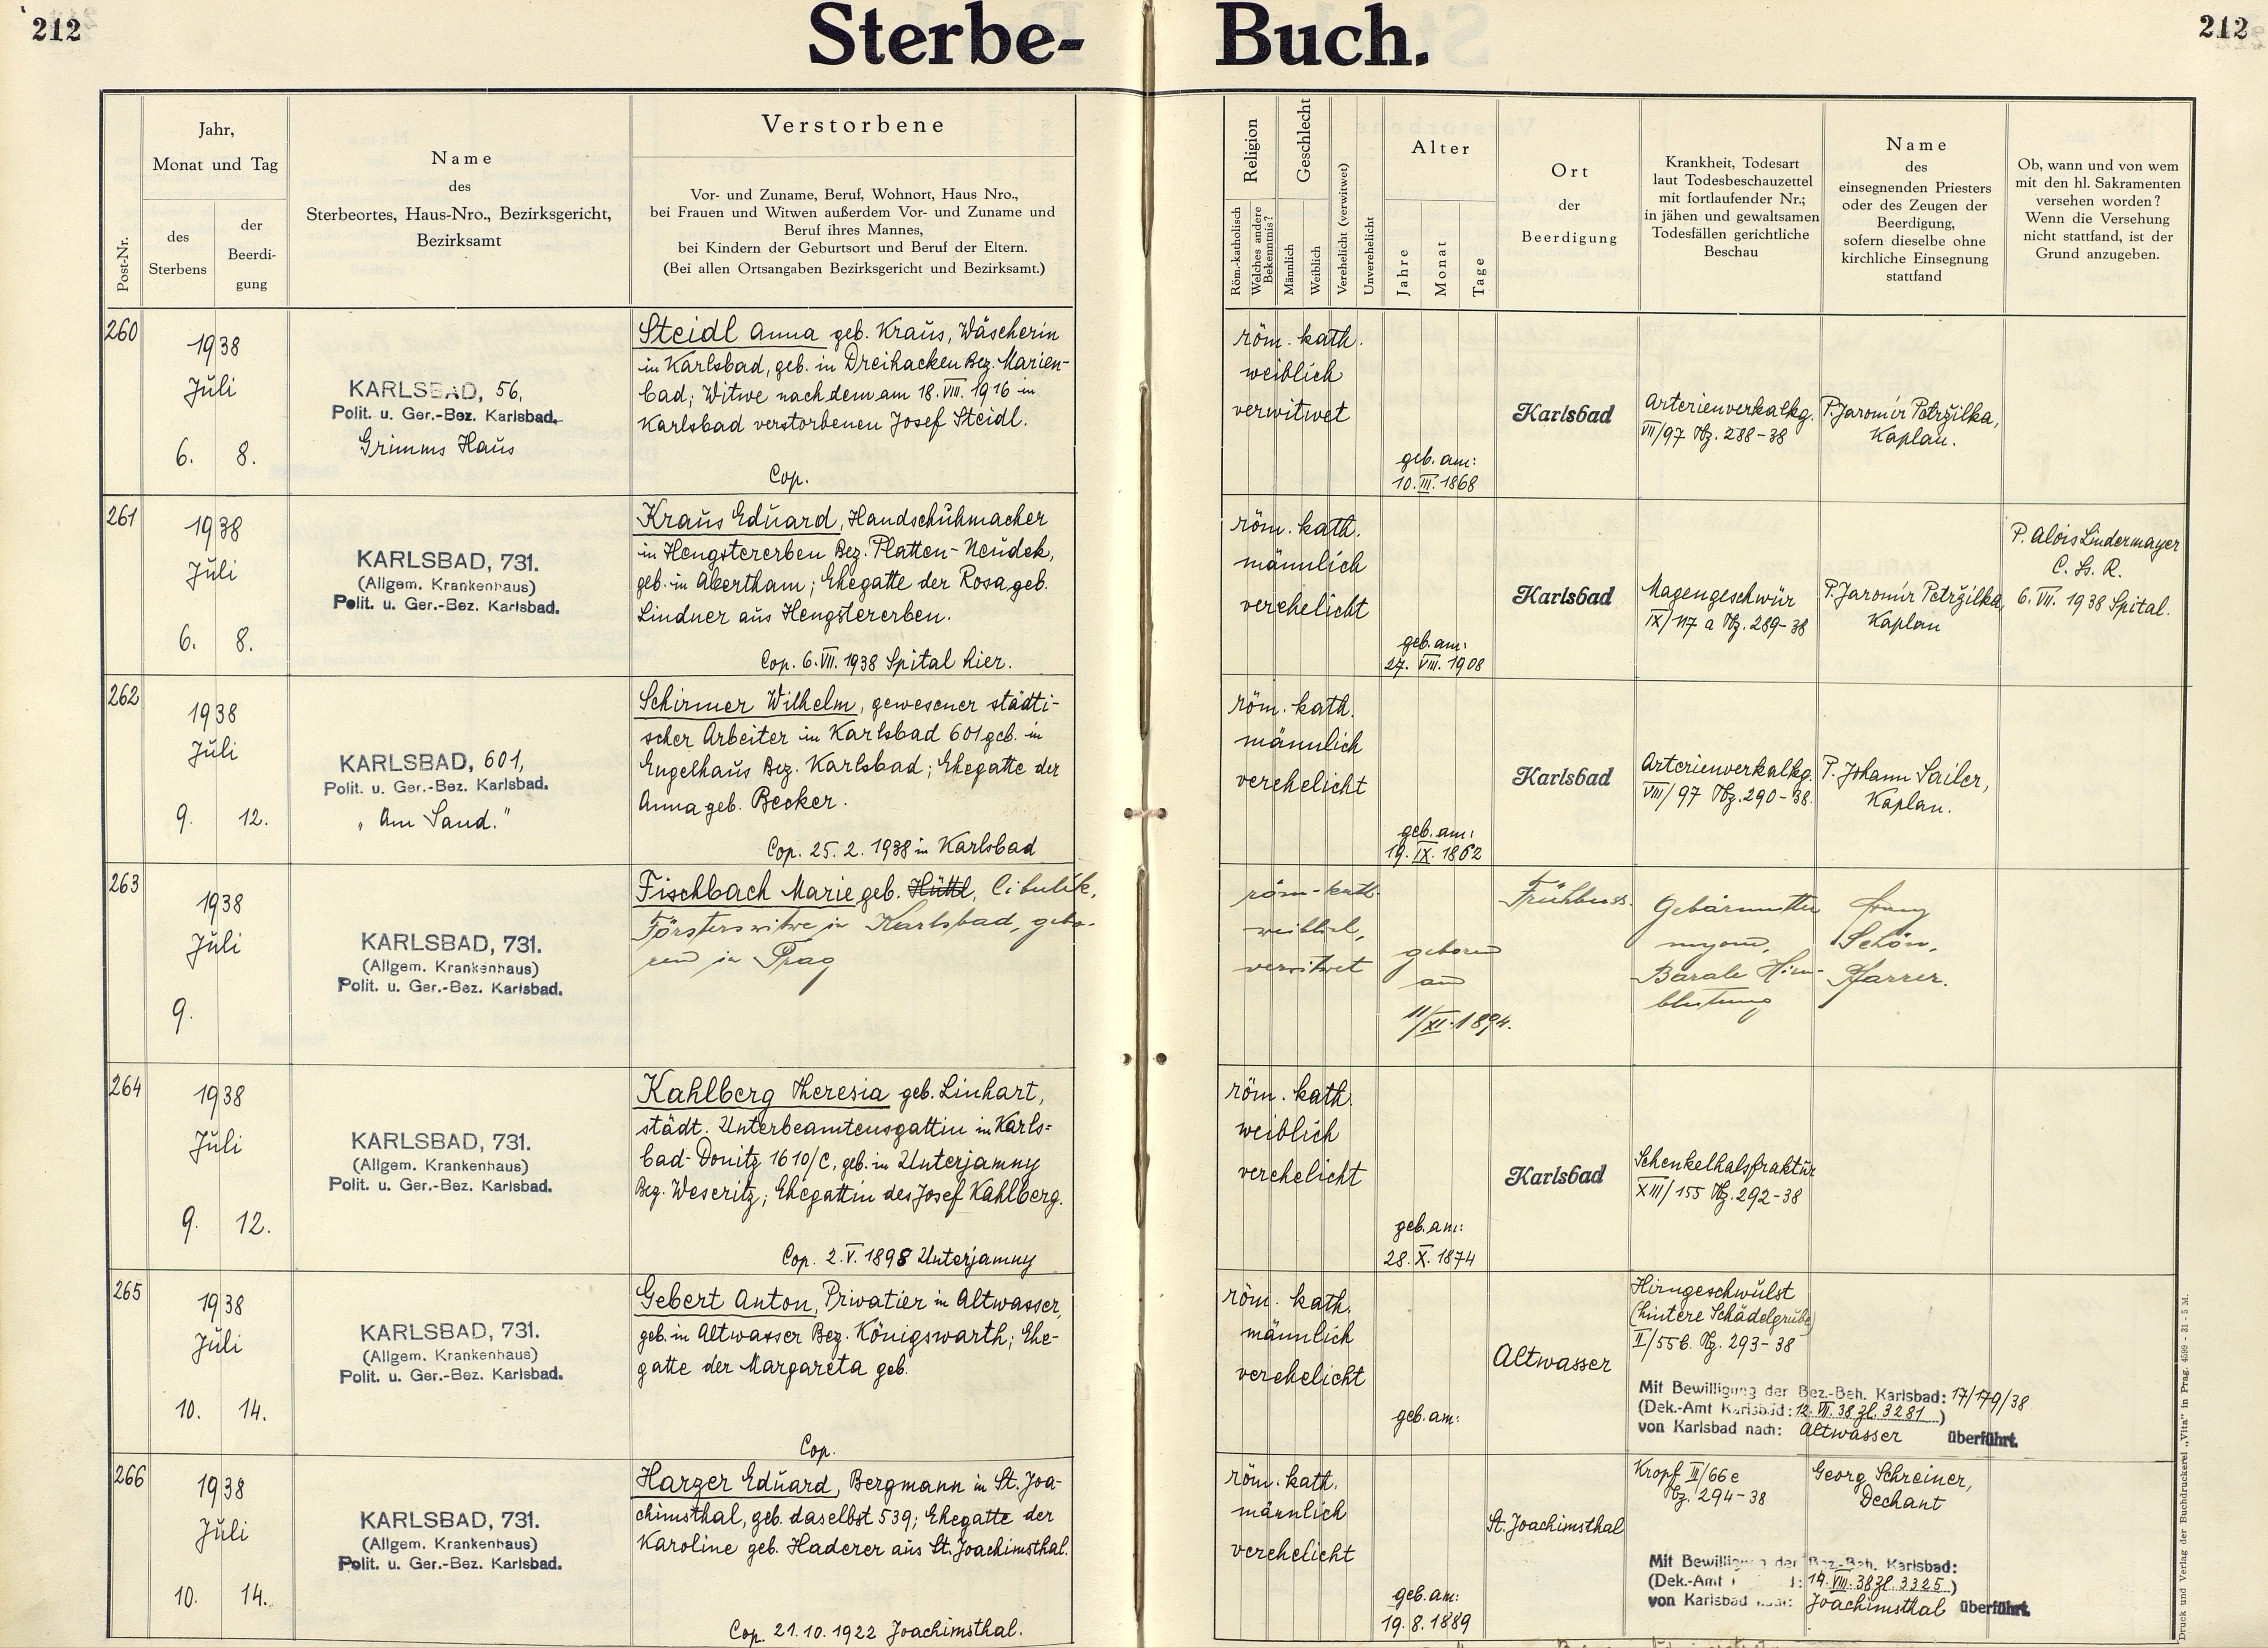 212
Sterbe- Buch.
212
Post-Nr.
Jahr,
Monat und Tag
des
Sterbens
der
Beerdi-
gung
Name
des
Sterbeortes, Haus-Nro., Bezirksgericht,
Bezirksamt
Verstorbene
Vor- und Zuname, Beruf, Wohnort, Haus Nro.,
bei Frauen und Witwen außerdem Vor- und Zuname und
Beruf ihres Mannes,
bei Kindern der Geburtsort und Beruf der Eltern.
(Bei allen Ortsangaben Bezirksgericht und Bezirksamt.)
Religion
Röm.-katholisch
Welches andere
Bekenntnis?
Geschlecht
Männlich
Weiblich
Verehelicht (verwitwet)
Unverehelicht
Alter
Jahre
Monat
Tage
Ort
der
Beerdigung
Krankheit, Todesart
laut Todesbeschauzettel
mit fortlaufender Nr.;
in jähen und gewaltsamen
Todesfällen gerichtliche
Beschau
Name
des
einsegnenden Priesters
oder des Zeugen der
Beerdigung,
sofern dieselbe ohne
kirchliche Einsegnung
stattfand
Ob, wann und von wem
mit den hl. Sakramenten
versehen worden?
Wenn die Versehung
nicht stattfand, ist der
Grund anzugeben.
260
1938
Juli
6. 8.
KARLSBAD, 56,
Polit. u. Ger.-Bez. Karlsbad.
Grimms Haus
Steidl Anna geb. Kraus, Wäscherin
in Karlsbad, geb. in Dreihacken Bez. Marien-
bad; Witwe nach dem am 18. VII. 1916 in
Karlsbad verstorbenen Josef Steidl.
Cop.
röm. kath.
weiblich
verwitwet
geb. am:
10. III. 1868
Karlsbad
Arterienverkalkg.
VII/97 Tbz. 288-38
P. Jaromír Petržilka,
Kaplan.
261
1938
Juli
6. 8.
KARLSBAD, 731.
(Allgem. Krankenhaus)
Polit. u. Ger.-Bez. Karlsbad.
Kraus Eduard, Handschuhmacher
in Hengstererben Bez. Platten-Neudek,
geb. in Abertham; Ehegatte der Rosa geb.
Lindner aus Hengstererben.
Cop. 6. VII. 1938 Spital hier.
röm. kath.
männlich
verehelicht
geb. am:
27. VIII. 1908
Karlsbad
Magengeschwür
IX/117 a Tbz. 289-38
P. Jaromír Petržilka,
Kaplan
P. Alois Lindermayer
C. Ss. R.
6. VII. 1938 Spital.
262
1938
Juli
9. 12.
KARLSBAD, 601,
Polit. u. Ger.-Bez. Karlsbad.
„Am Sand."
Schirmer Wilhelm, gewesener städti-
scher Arbeiter in Karlsbad 601 geb. in
Engelhaus Bez. Karlsbad; Ehegatte der
Anna geb. Becker.
Cop. 25. 2. 1938 in Karlsbad
röm. kath.
männlich
verehelicht
geb. am:
19. IX. 1862
Karlsbad
Arterienverkalkg.
VIII/97 Tbz. 290-38.
P. Johann Sailer,
Kaplan.
263
1938
Juli
9.
KARLSBAD, 731.
(Allgem. Krankenhaus)
Polit. u. Ger.-Bez. Karlsbad.
Fischbach Marie geb. Hüttl, Cibulik,
Försterswitwe in Karlsbad, gebo-
ren in Prag
röm-kath.
weiblich,
verwitwet
geboren
am
11/XI. 1894.
Frühbuss.
Gebärmutter
myom,
Basale Hirn-
blutung
Franz
Schön,
Pfarrer.
264
1938
Juli
9. 12.
KARLSBAD, 731.
(Allgem. Krankenhaus)
Polit. u. Ger.-Bez. Karlsbad.
Kahlberg Theresia geb. Linhart,
städt. Unterbeamtensgattin in Karls=
bad-Donitz 1610/C, geb. in Unterjamny
Bez. Weseritz; Ehegattin des Josef Kahlberg.
Cop. 2. V. 1898 Unterjamny
röm. kath.
weiblich
verehelicht
geb. am:
28. X. 1874
Karlsbad
Schenkelhalsfraktur
XIII/155 Tbz. 292-38
265
1938
Juli
10. 14.
KARLSBAD, 731.
(Allgem. Krankenhaus)
Polit. u. Ger.-Bez. Karlsbad.
Gebert Anton, Privatier in Altwasser,
geb. in Altwasser Bez. Königswarth; Ehe-
gatte der Margareta geb.
Cop.
röm. kath.
männlich
verehelicht
geb. am:
Altwasser
Hirngeschwulst
(hintere Schädelgrube)
II/55 b. Tbz. 293-38
Mit Bewilligung der Bez.-Beh. Karlsbad: 17/179/38
(Dek.-Amt Karlsbad: 12. VII. 38 Zl. 3281)
von Karlsbad nach: Altwasser überführt.
266
1938
Juli
10. 14.
KARLSBAD, 731.
(Allgem. Krankenhaus)
Polit. u. Ger.-Bez. Karlsbad.
Harzer Eduard, Bergmann in St. Joa-
chimsthal, geb. daselbst 539; Ehegatte der
Karoline geb. Haderer aus St. Joachimsthal.
Cop. 21. 10. 1922 Joachimsthal.
röm. kath.
männlich
verehelicht
geb. am:
19. 8. 1889
St. Joachimsthal
Kropf II/66 e
Tbz. 294-38
Georg Schreiner,
Dechant
Mit Bewilligung der Bez.-Beh. Karlsbad:
(Dek.-Amt : 14. VIII. 38 Zl. 3325)
von Karlsbad nach: Joachimsthal überführt.
Druck und Verlag der Buchdruckerei „Vita" in Prag. 4599 - 31 - 5 M.